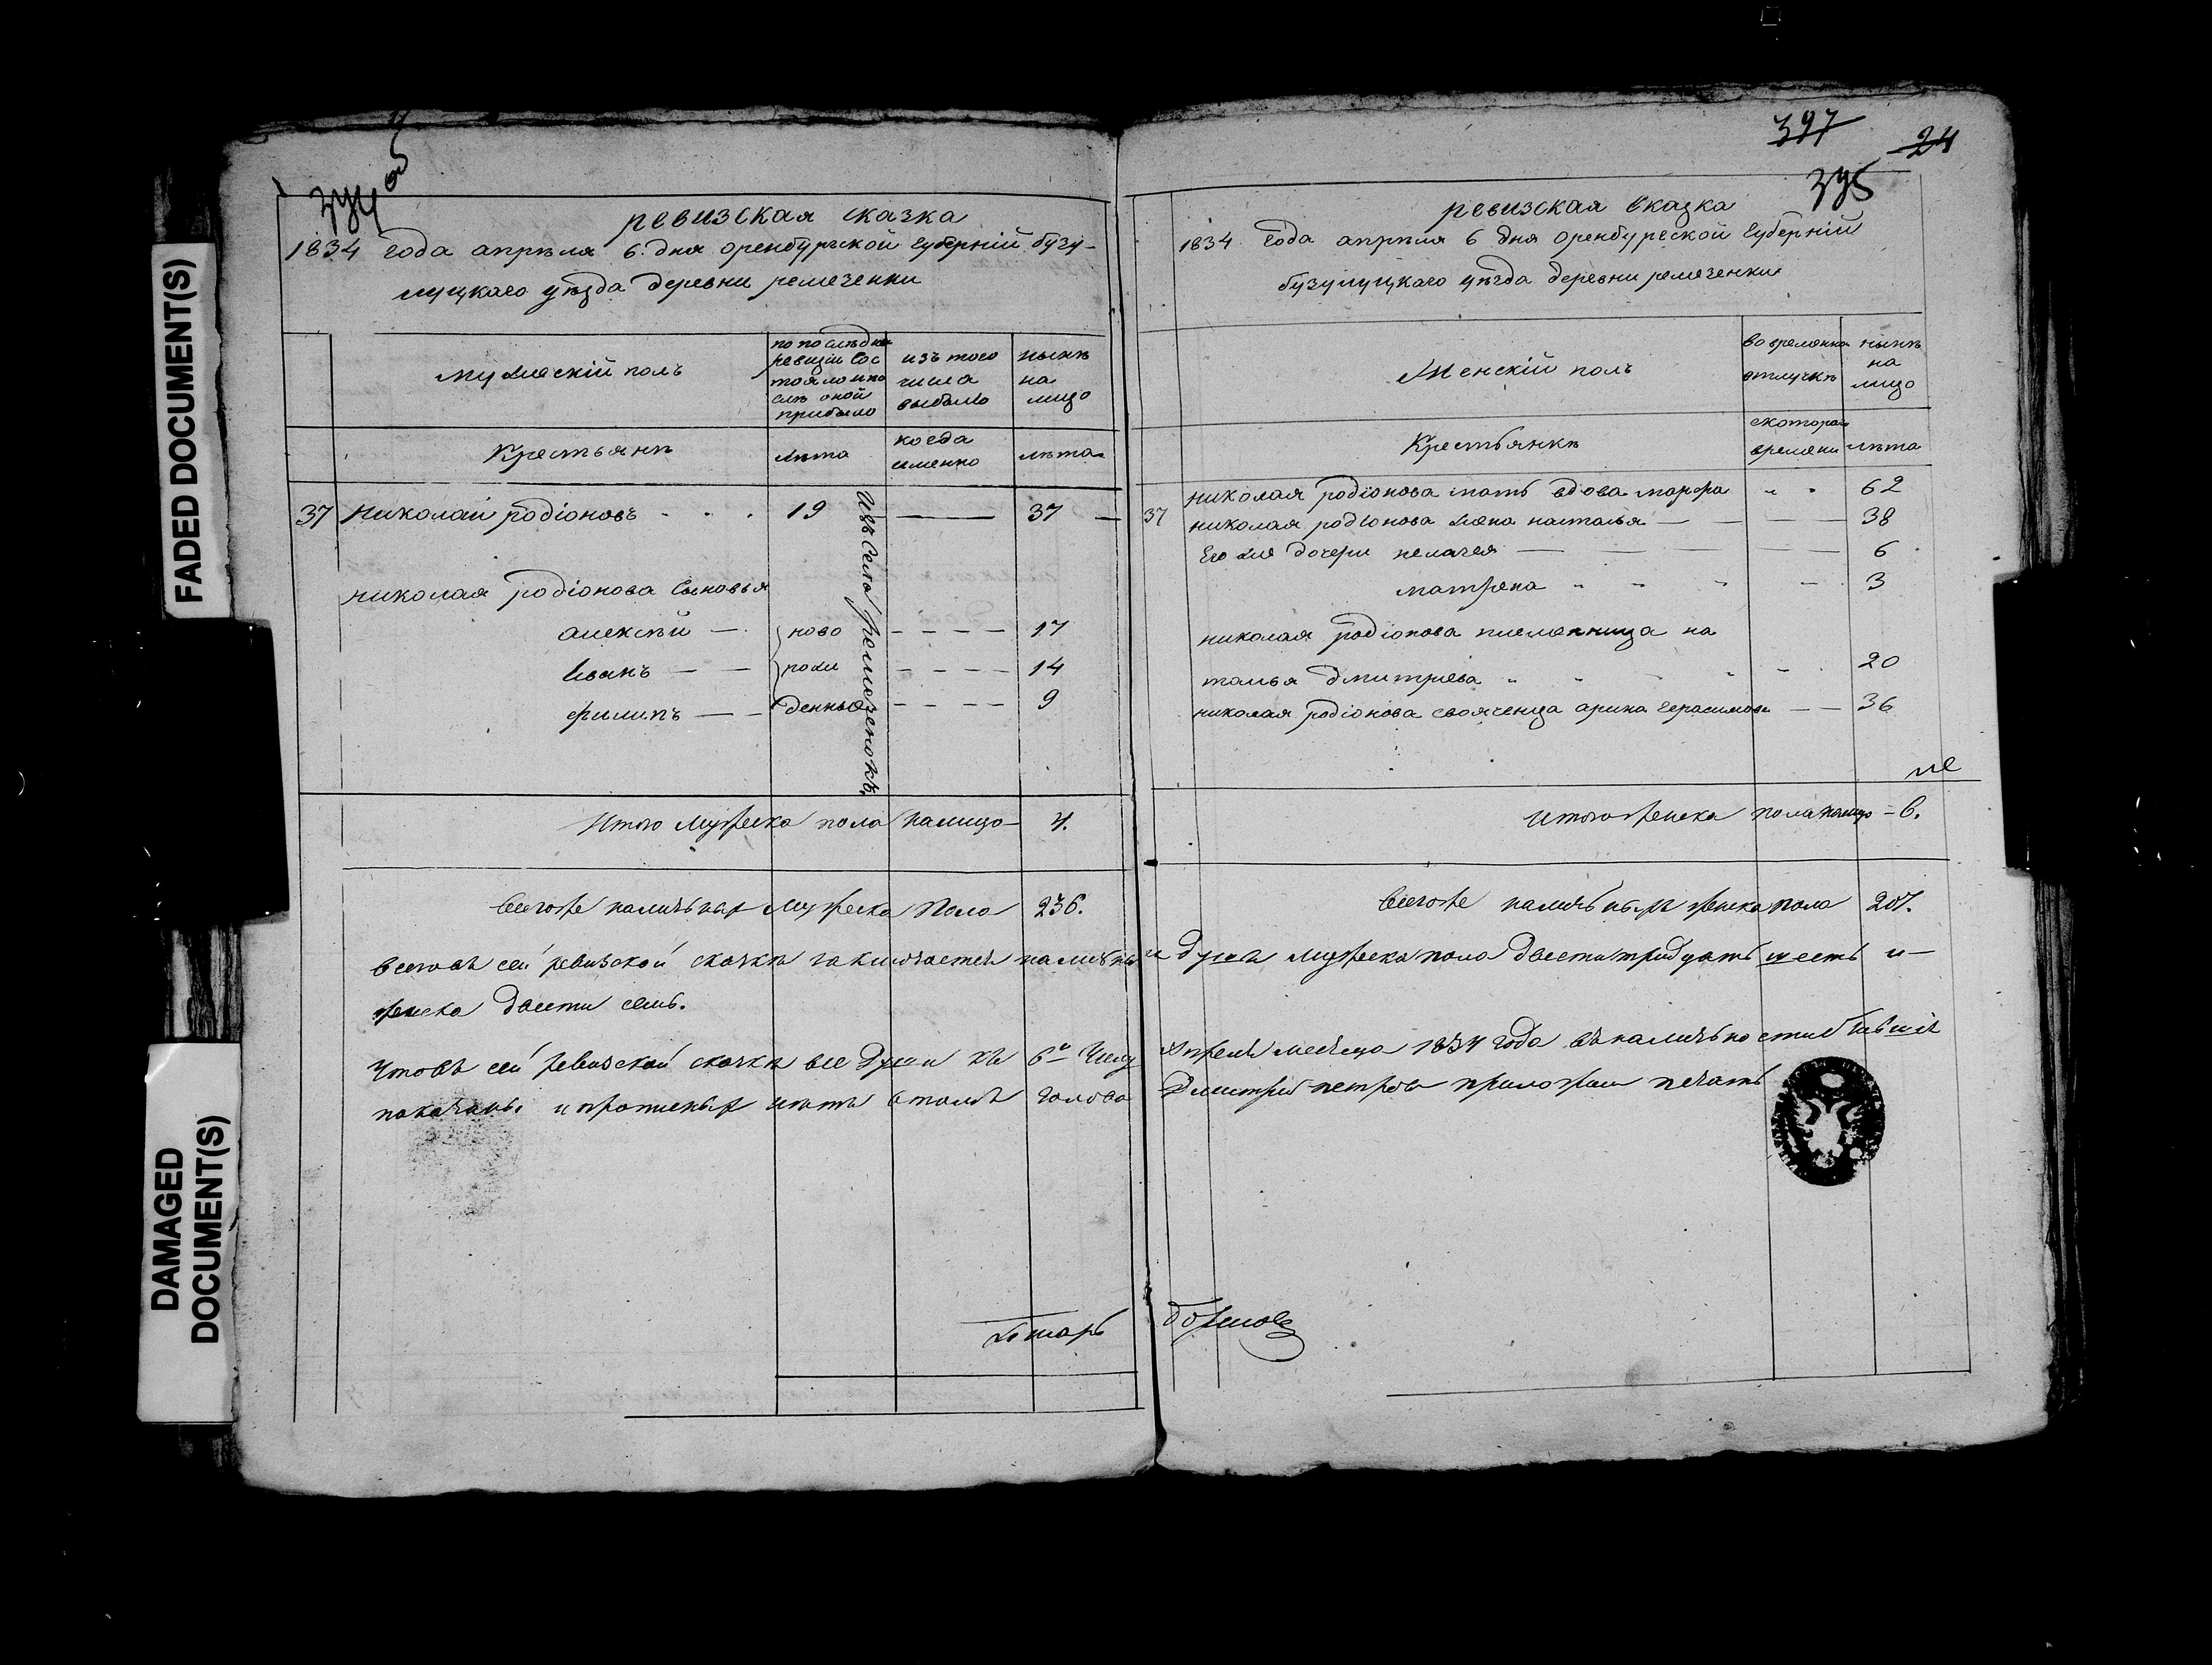 FADED DOCUMENT(S)
DAMAGED
DOCUMENT(S)
374 об
ревизская сказка
1834 года апрѣля 6. дня оренбургской губерній бузу-
луцкаго уѣзда деревни ремезенки
мужескій полъ
по послѣдне
ревизіи сос
тояло и по
слѣ оной
прибыло
изъ того
числа
выбыло
нынѣ
на
лицо
Крестьянѣ
лѣта
когда
именно
лѣта
37 николай родіоновъ 19 — 37
Изъ Села ремезенокъ.
николая родіонова сыновья
алексѣй — ново — 17
иванъ — рож — 14
филипъ — денные — 9
Итого мужеска пола налицо 4.
Всего же наличныхъ мужеска пола 236.
397
24
375
ревизская сказка
1834 года апрѣля 6 дня оренбургской губерній
бузулуцкаго уѣзда деревни ремезенки
Женскій полъ
во временно
отлучкѣ
нынѣ
на
лицо
Крестьянкѣ
с котораго
времени
лѣта
37 николая родіонова мать вдова марфа 62
николая родіонова жена наталья — 38
Его же дочери пелагея — 6
матрена 3
николая родіонова племянница на
талья дмитрева 20
николая родіонова свояченца арина герасимова — 36
итого женска пола налицо – 6.
Всего же наличныхъ женска пола 207.
всего въ сей ревизской сказкѣ заключается наличныхъ душъ мужеска пола двести тридцать шесть и —
женска двести семь.
Что въ сей ревизской сказкѣ все души къ 6му числу Апреля месяца 1834 года въ наличности бывшія
показаны и прописныхъ нетъ втомъ голова Дмитрій петровъ приложилъ печать